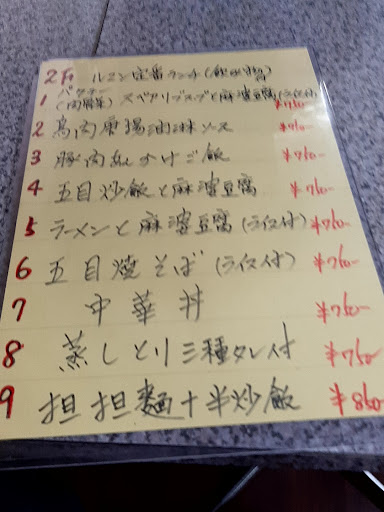 2F ルミン定番ランチ(飲み物付
1 パクテー(肉骨茶)スペアリブスープと麻婆豆腐(ライス付) ¥760-
2 鳥肉唐揚油淋ソース ¥760-
3 豚肉あんかけご飯 ¥760-
4 五目炒飯と麻婆豆腐 ¥760-
5 ラーメンと麻婆豆腐(ライス付) ¥760-
6 五目焼そば(ライス付) ¥760-
7 中華丼 ¥760-
8 蒸しとり三種タレ付 ¥760-
9 担担麺+半炒飯 ¥860-